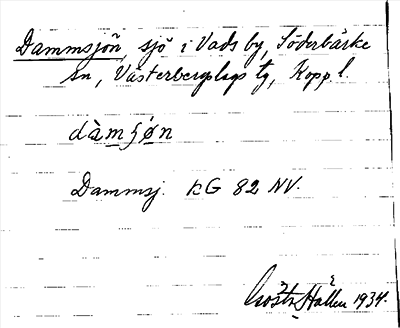 Dammsjön, sjö i Vads by, Söderbärke
sn, Västerbergslags tg, Kopp. l.
dàmʃøn
Dammsj. KG 82 NV.
Gösta Hallén 1934.